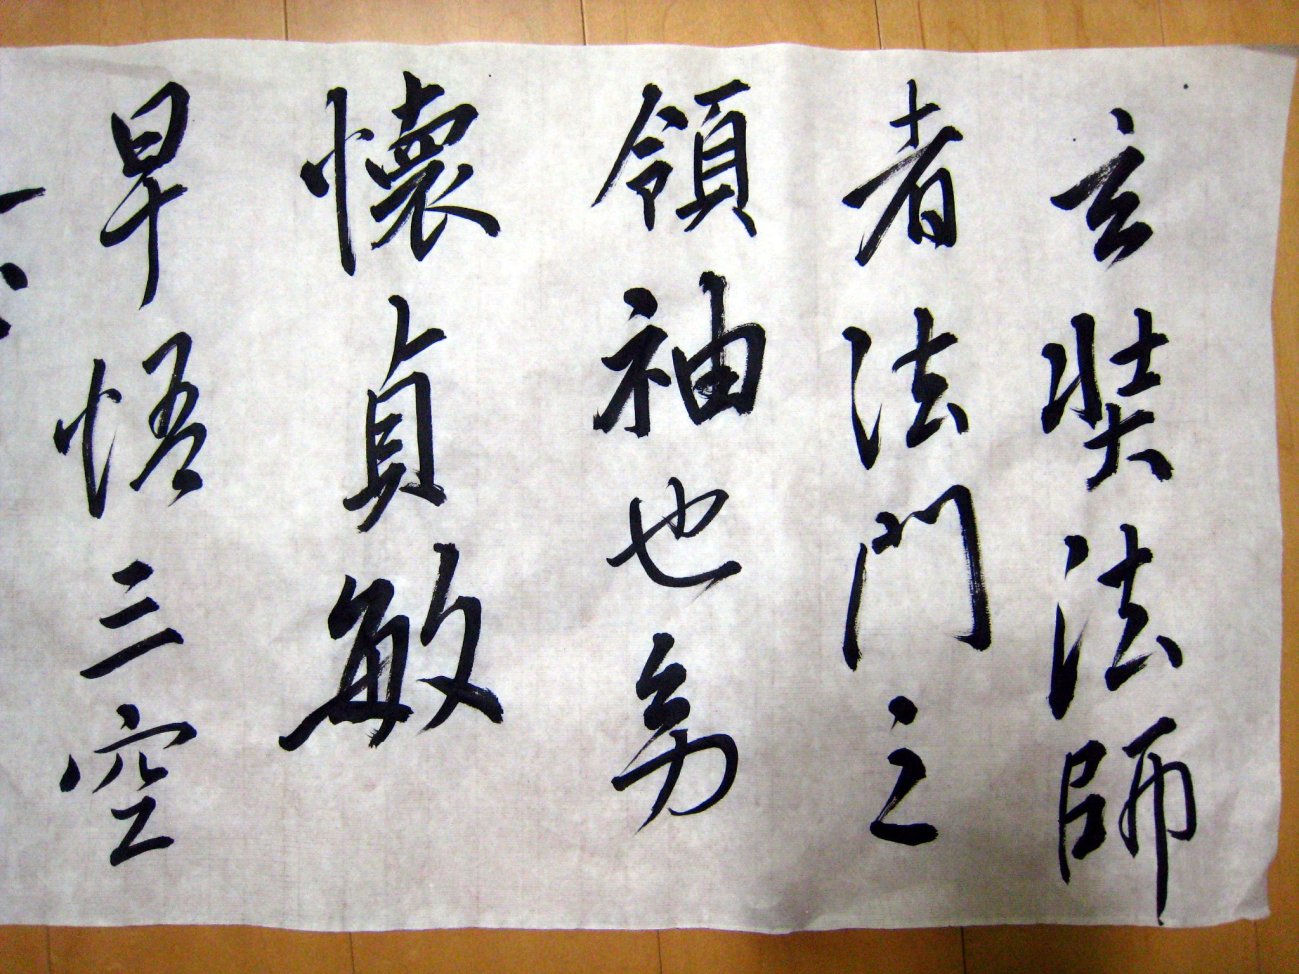 玄奘法師
者法門之
領袖也㓜
懷貞敏
早悟三空